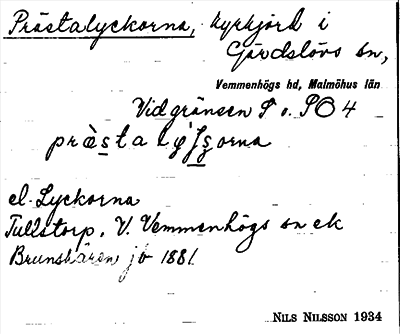 Prästalyckorna, kyrkjord i
Gärdslövs sn,
Vemmenhögs hd, Malmöhus län
Vid gränsen S o. SO 4
el. Lyckorna
Tullstorp, V. Vemmenhögs sn ek
jb 1881
NILS NILSSON 1934